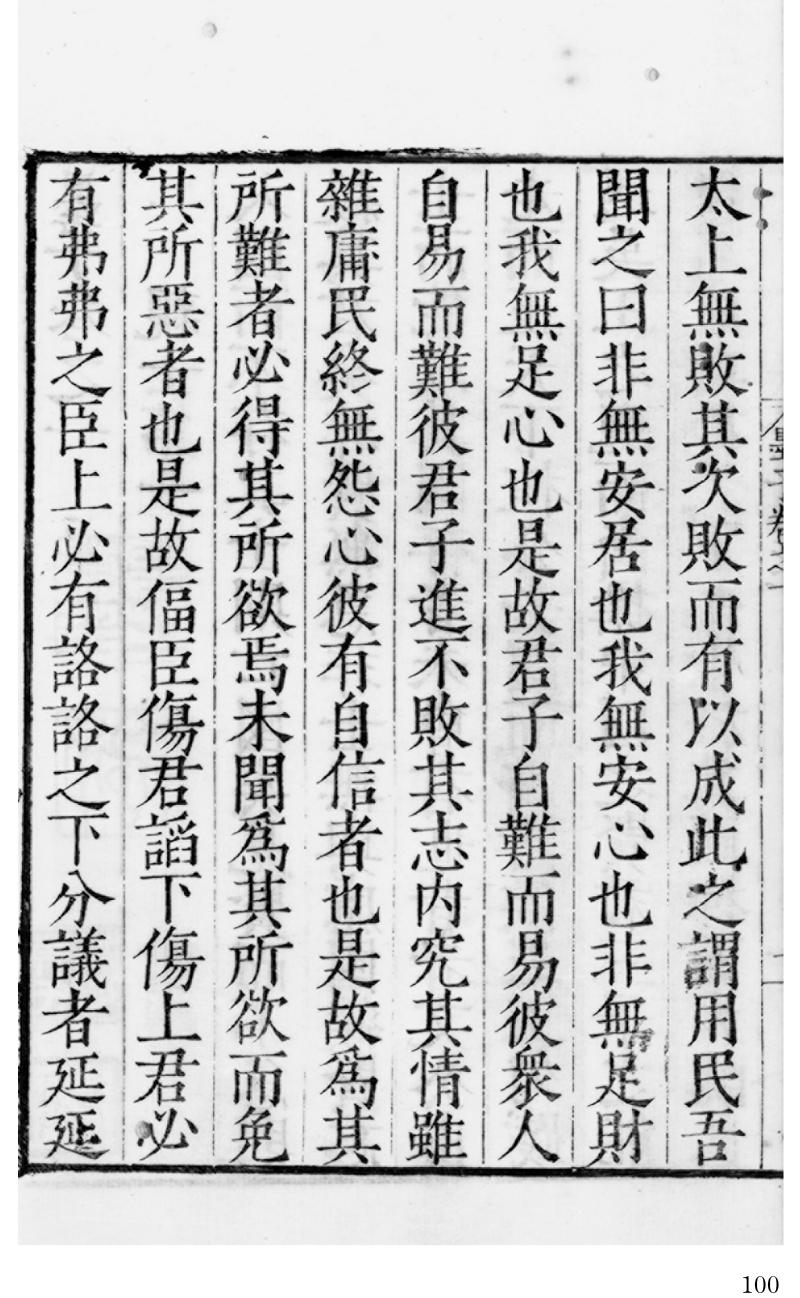 太上無敗其次敗而有以成此之謂用民吾
聞之曰非無安居也我無安心也非無足財
也我無足心也是故君子自難而易彼衆人
自易而難彼君子進不敗其志内究其情雖
雜庸民終無怨心彼有自信者也是故爲其
所難者必得其所欲焉未聞爲其所欲而免
其所惡者也是故偪臣傷君諂下傷上君必
有弗弗之臣上必有詻詻之下分議者延延
100